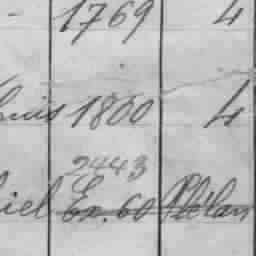 - 1769 4
1800 4
2443
iel Ex. 60 Plélan